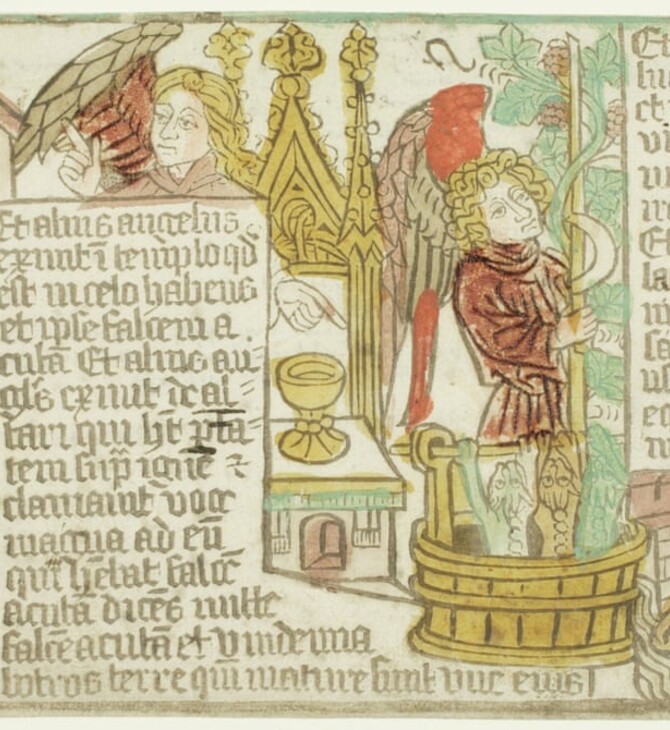 Et alius angelus
exivit ī templo qd̄
est in celo habens
et ipse falcem a
cutā Et alius an
gls̄ exivit de al
tari qui hꝫt ptā
tem sup̄ igne ⁊
clamavit voce
magna ad eū
qui hēbat falcē
acutā dicēs mitte
falcē acutā et vindemia
botros terre qm̄ mature sunt vuc eius